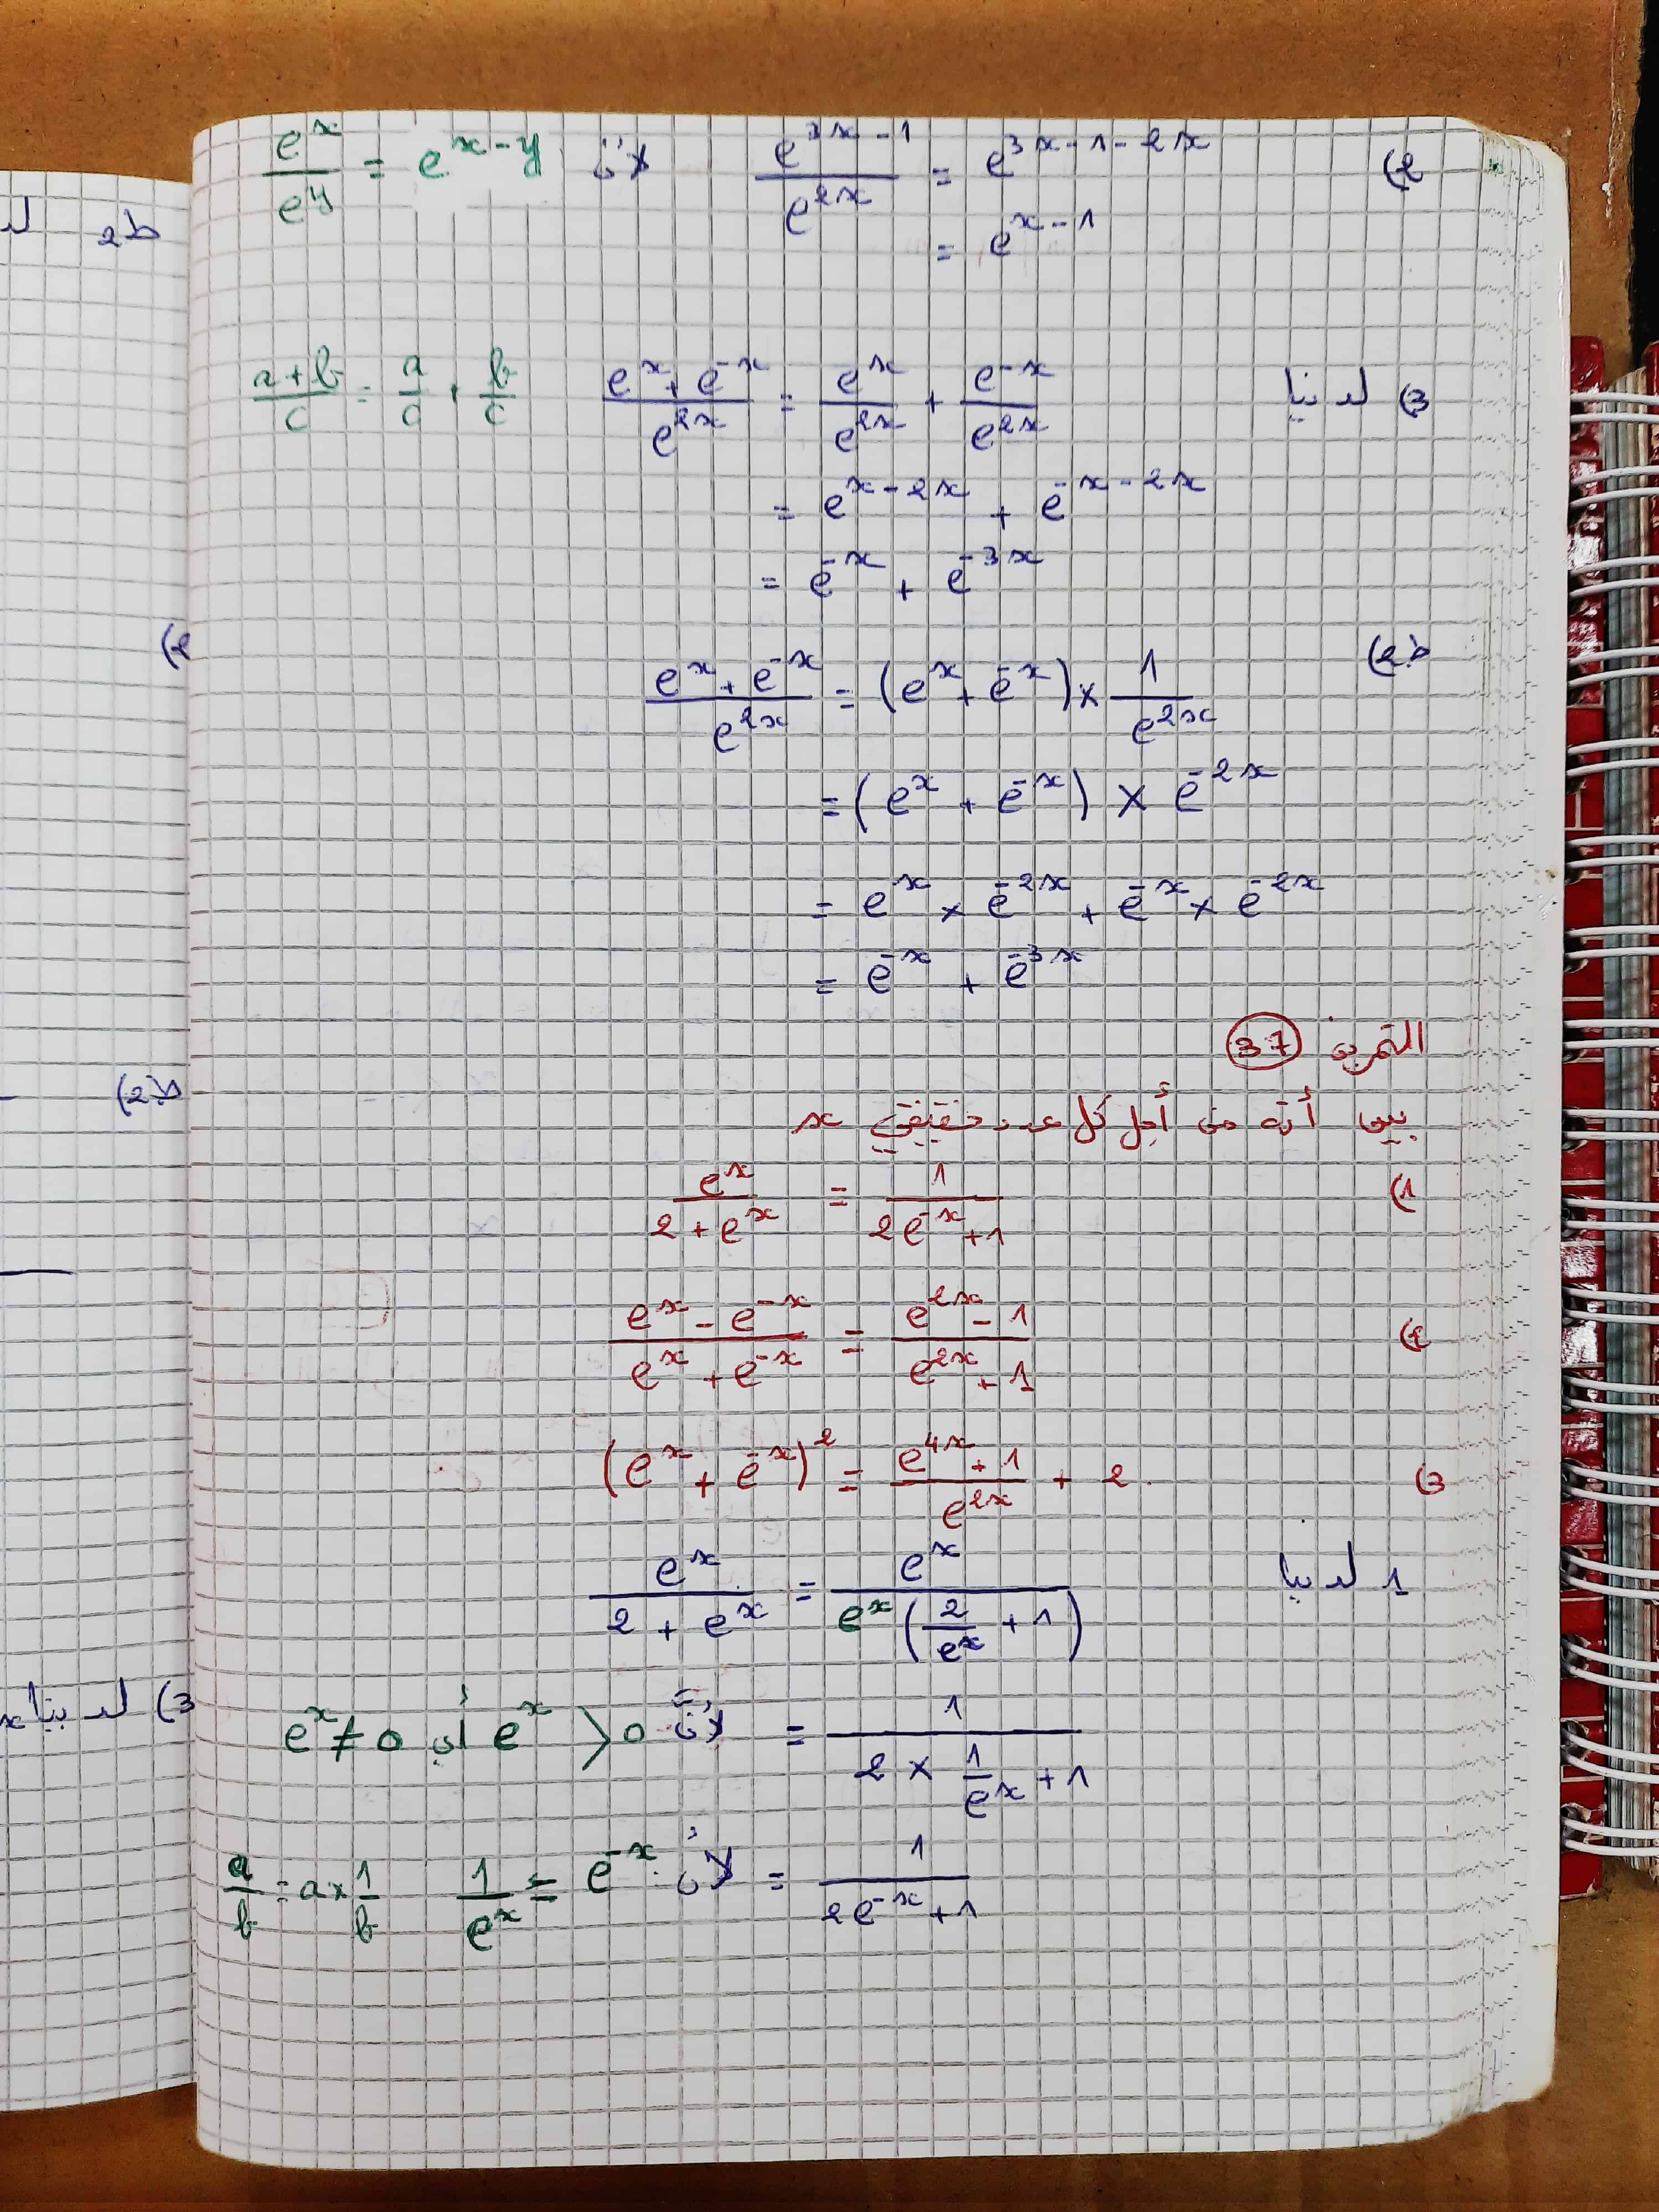 2) e^{3x-1}/e^{2x} = e^{3x-1-2x} لأن e^x/e^y = e^{x-y}
= e^{x-1}
3) لدينا (e^x + e^{-x})/e^{2x} = e^x/e^{2x} + e^{-x}/e^{2x} (a+b)/c = a/c + b/c
= e^{x-2x} + e^{-x-2x}
= e^{-x} + e^{-3x}
ط2) (e^x + e^{-x})/e^{2x} = (e^x + e^{-x}) × 1/e^{2x}
= (e^x + e^{-x}) × e^{-2x}
= e^x × e^{-2x} + e^{-x} × e^{-2x}
= e^{-x} + e^{-3x}
التمرين 37
بين أنه من أجل كل عدد حقيقي x
1) e^x/(2 + e^x) = 1/(2e^{-x} + 1)
2) (e^x - e^{-x})/(e^x + e^{-x}) = (e^{2x} - 1)/(e^{2x} + 1)
3) (e^x + e^{-x})^2 = (e^{4x} + 1)/e^{2x} + 2
1 لدينا e^x/(2 + e^x) = e^x/(e^x(2/e^x + 1))
= 1/(2 × 1/e^x + 1) لأن e^x > 0 أي e^x ≠ 0
= 1/(2e^{-x} + 1) لأن 1/e^x = e^{-x} a/b = a × 1/b
ط2
2)
ط2)
3) لدينا